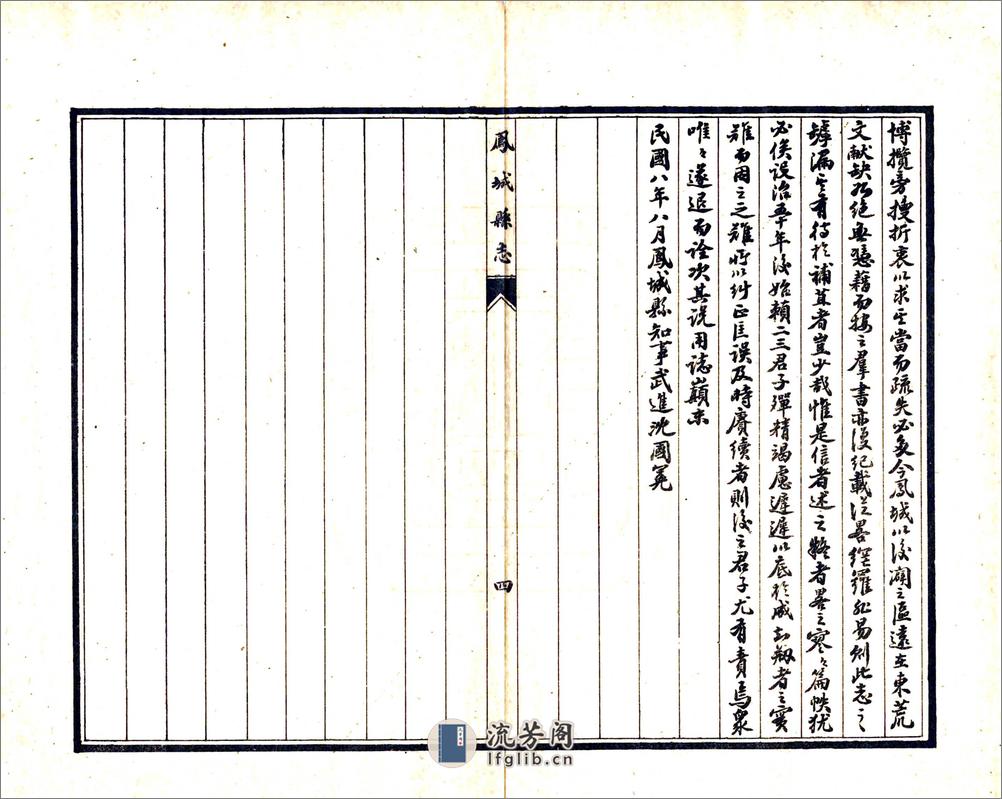 博攬旁搜折衷以求其當而疏失必多今鳳城以後闢之區遠在東荒
文献缺如絕無憑藉而按之羣書亦復紀載從畧網羅非易則此志之
罅漏其有待於補苴者豈少哉惟是信者述之疑者畧之寥〻篇帙猶
必俟設治五十年後始賴二三君子殫精竭慮遲遲以底於成知剏者之實
難而因之之難所以糾正匡誤及時賡續者則後之君子尤有責焉衆
唯〻遂退而詮次其説用誌巔末
民國八年八月鳳城縣知事武進沈國冕
鳳城縣志
四
流芳阁
lfglib.cn